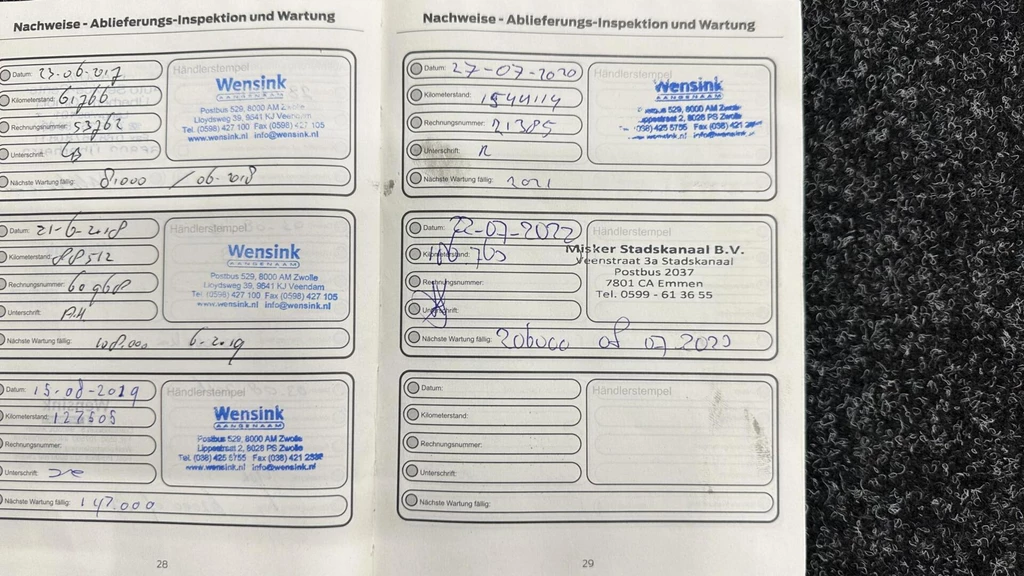 Nachweise - Ablieferungs-Inspektion und Wartung
Datum: 23-06-2017
Kilometerstand: 61766
Rechnungsnummer: 53762
Unterschrift:
Nächste Wartung fällig: 81000 / 06-2018
Händlerstempel
Wensink
AANGENAAM
Postbus 529, 8000 AM Zwolle
Lloydsweg 39, 9641 KJ Veendam
Tel. (0598) 427 100 Fax (0598) 427 105
www.wensink.nl info@wensink.nl
Datum: 21-6-2018
Kilometerstand: 88512
Rechnungsnummer: 60968
Unterschrift:
Nächste Wartung fällig: 108.000 6-2019
Händlerstempel
Wensink
AANGENAAM
Postbus 529, 8000 AM Zwolle
Lloydsweg 39, 9641 KJ Veendam
Tel. (0598) 427 100 Fax (0598) 427 105
www.wensink.nl info@wensink.nl
Datum: 15-08-2019
Kilometerstand: 127505
Rechnungsnummer:
Unterschrift:
Nächste Wartung fällig: 147.000
Händlerstempel
Wensink
AANGENAAM
Postbus 529, 8000 AM Zwolle
Lippestraat 2, 8028 PS Zwolle
Tel. (038) 425 5755 Fax (038) 421
www.wensink.nl info@wensink.nl
28
Nachweise - Ablieferungs-Inspektion und Wartung
Datum: 27-07-2020
Kilometerstand:
Rechnungsnummer: 21385
Unterschrift:
Nächste Wartung fällig: 2021
Händlerstempel
Wensink
AANGENAAM
529, 8000 AM Zwolle
Lippestraat 2, 8028 PS Zwolle
(038) 425 5755 Fax (038) 421
www.wensink.nl info@wensink.nl
Datum: 22-07-2022
Kilometerstand:
Rechnungsnummer:
Unterschrift:
Nächste Wartung fällig: of 07 2023
Händlerstempel
Misker Stadskanaal B.V.
Veenstraat 3a Stadskanaal
Postbus 2037
7801 CA Emmen
Tel. 0599 - 61 36 55
Datum:
Kilometerstand:
Rechnungsnummer:
Unterschrift:
Nächste Wartung fällig:
Händlerstempel
29